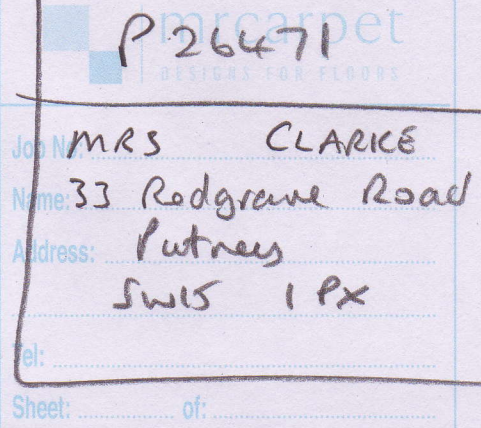 mrcarpet
P26471
DESIGNS FOR FLOORS
Job No:
MRS CLARKE
Name:
33 Redgrave Road
Address:
Putney
SW15 1PX
Tel:
Sheet: of: